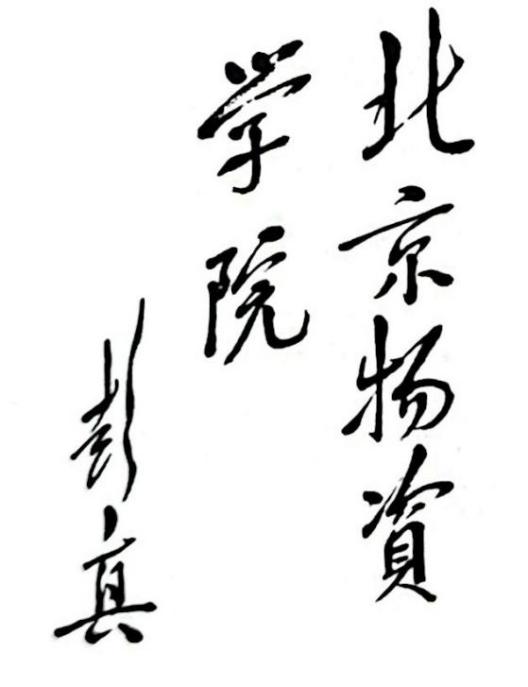 北京物資
学院
彭真